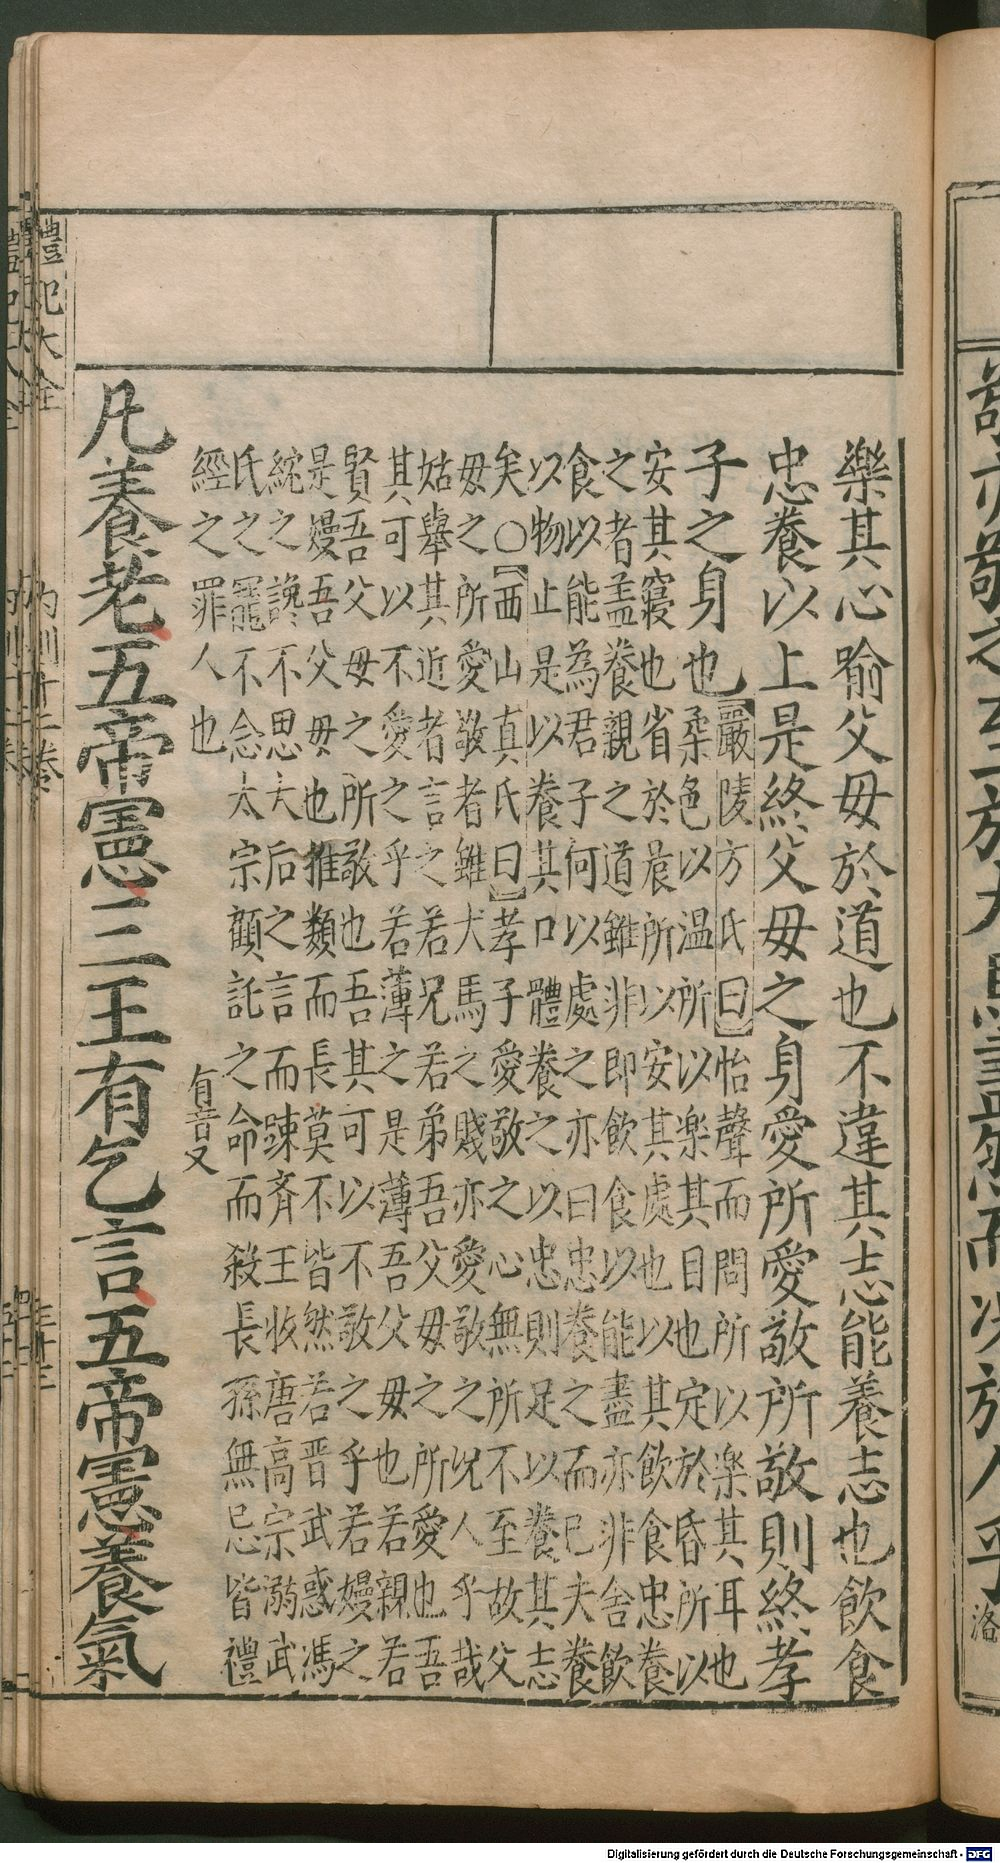 樂其心喻父毋於道也不違其志能養志也飲食
忠養以上是終父毋之身愛所愛敬所敬則終孝
子之身也
【嚴陵方氏曰】怡聲而問所以樂其耳也
柔色以温所以楽其目也定於昏所以
安其寢也省於晨所以安其處也以其飲食忠養
之者盖養親之道雖非即飲食以能盡亦非舎飲
食以能為君子何以處之亦曰忠養之而已夫養
以物止是以養其口體養之以忠則足以養其志
矣○【西山真氏曰】孝子愛敬之心無所不至故父
毋之所愛敬者雖犬馬之賤亦愛敬之况人乎哉
姑舉其近者言之若兄若弟吾父毋之所愛也吾
其可以不愛之乎若薄之是薄吾父毋也若親若
賢吾父毋之所敬也吾其可以不敬之乎若嫚之
是嫚吾父毋也推類而長莫不皆然若晋武惑馮
紞之讒不思太后之言而踈齊王攸唐高宗溺武
氏之寵不念太宗顧託之命而殺長孫無忌皆禮
經之罪人也
有音又
凡養老五帝憲三王有乞言五帝憲養氣
禮記大全
内則十二卷
洛
Digitalisierung gefördert durch die Deutsche Forschungsgemeinschaft - DFG